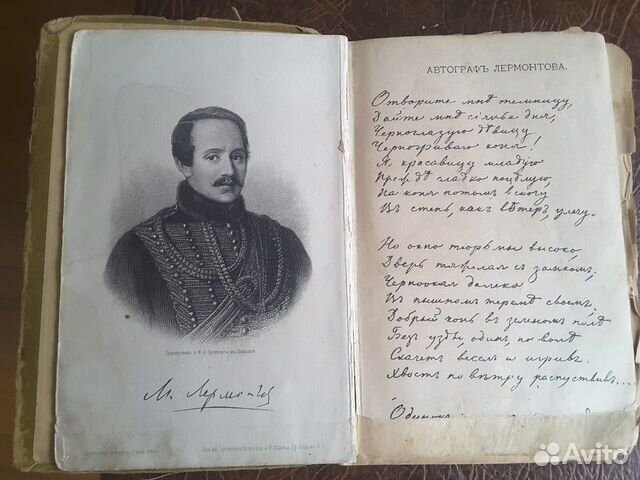 Гравировано у Ф. А. Брокгауза въ Лейпцигѣ
М. Лермонтовъ
АВТОГРАФЪ ЛЕРМОНТОВА.
Отворите мнѣ темницу,
Дайте мнѣ сіянье дня,
Черноглазую дѣвицу
Черногриваго коня!
Я красавицу младую
Прежде сладко поцѣлую,
На коня потомъ вскочу
Въ степь, какъ вѣтеръ, улечу.
Но окно тюрьмы высоко,
Дверь тяжелая съ замкомъ;
Черноокая далеко
Въ пышномъ теремѣ своемъ;
Добрый конь въ зеленомъ полѣ
Безъ узды, одинъ, по волѣ
Скачетъ веселъ и игривъ
Хвостъ по вѣтру распустивъ...
Avito